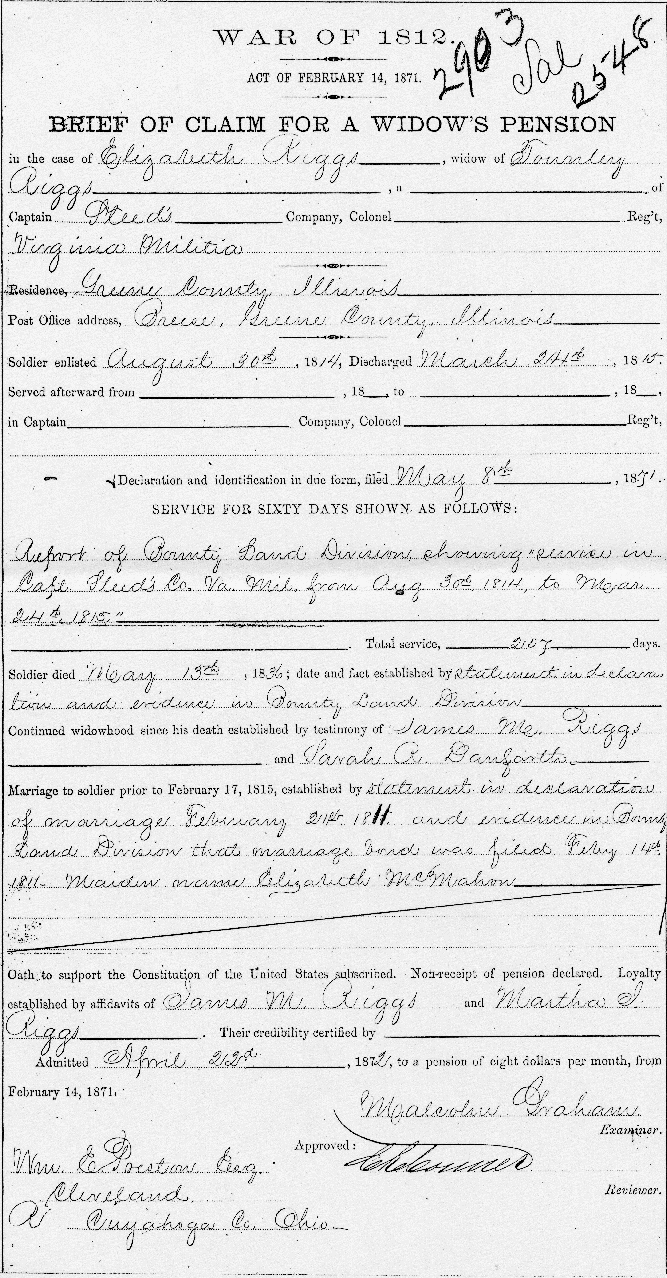 WAR OF 1812.
2903
Sal
2548
ACT OF FEBRUARY 14, 1871.
BRIEF OF CLAIM FOR A WIDOW'S PENSION
in the case of Elizabeth Riggs, widow of Townley
Riggs, a of
Captain Steed's Company, Colonel Reg't,
Virginia Militia
Residence, Greene County Illinois
Post Office address, Breese, Greene County, Illinois
Soldier enlisted August 30th, 1814, Discharged March 24th, 1815.
Served afterward from , 18 , to , 18 ,
in Captain Company, Colonel Reg't,
Declaration and identification in due form, filed May 8th, 1871.
SERVICE FOR SIXTY DAYS SHOWN AS FOLLOWS:
Report of Bounty Land Division showing "service in
Capt Steed's Co. Va. Mil. from Aug 30th 1814, to Mar
24th 1815."
Total service, 207 days.
Soldier died May 13th, 1836; date and fact established by statement in declara
tion and evidence in Bounty Land Division
Continued widowhood since his death established by testimony of James M. Riggs
and Sarah Danforth
Marriage to soldier prior to February 17, 1815, established by statement in declaration
of marriage February 21st 1811 and evidence in Bounty
Land Division that marriage bond was filed Feby 14th
1811. Maiden name Elizabeth McMahon
Oath to support the Constitution of the United States subscribed. Non-receipt of pension declared. Loyalty
established by affidavits of James M. Riggs and Martha J.
Riggs. Their credibility certified by
Admitted April 22d, 1872, to a pension of eight dollars per month, from
February 14, 1871.
Malcolm Graham
Examiner.
Approved:
Reviewer.
Wm. E. Preston Esq.
Cleveland
Cuyahoga Co. Ohio